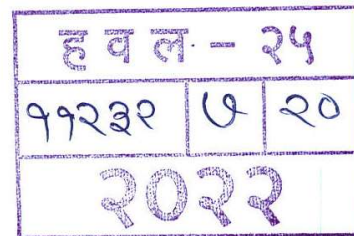 ह व ल. - २५
११२३२ ७ २०
२०२२